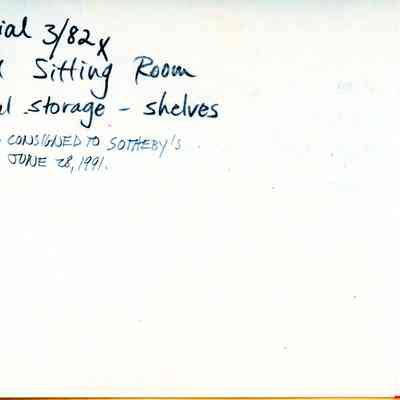 ial 3/82x
Sitting Room
al storage - shelves
CONSIGNED TO SOTHEBY's
JUNE 28, 1991.